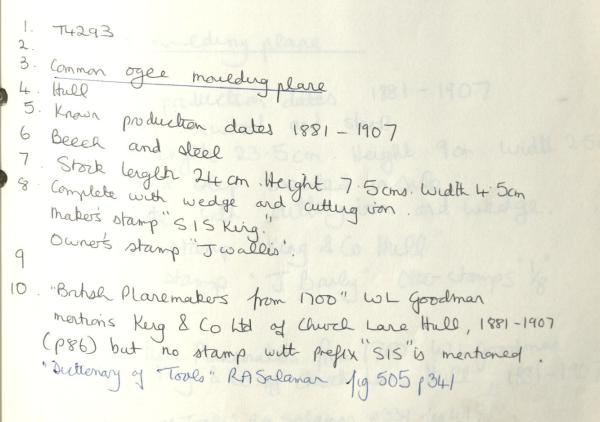 1. T4293
2.
3. Common ogee moulding plane
4. Hull
5. Known production dates 1881 - 1907
6 Beech and steel
7. Stock length 24 cm. Height 7.5cms. Width 4.5cm
8. Complete with wedge and cutting iron.
Makers stamp "SIS King."
Owner's stamp "J Wallis".
9
10. "British Planemakers from 1700" WL Goodman
mentions King & Co Ltd of Church Lane Hull, 1881-1907
(p86) but no stamp with prefix "SIS" is mentioned.
"Dictionary of Tools" RA Salaman fig 505 p341